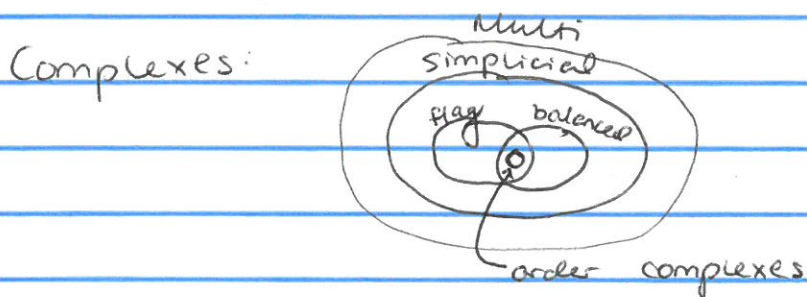 Multi
Complexes:
simplicial
flag
balanced
order complexes